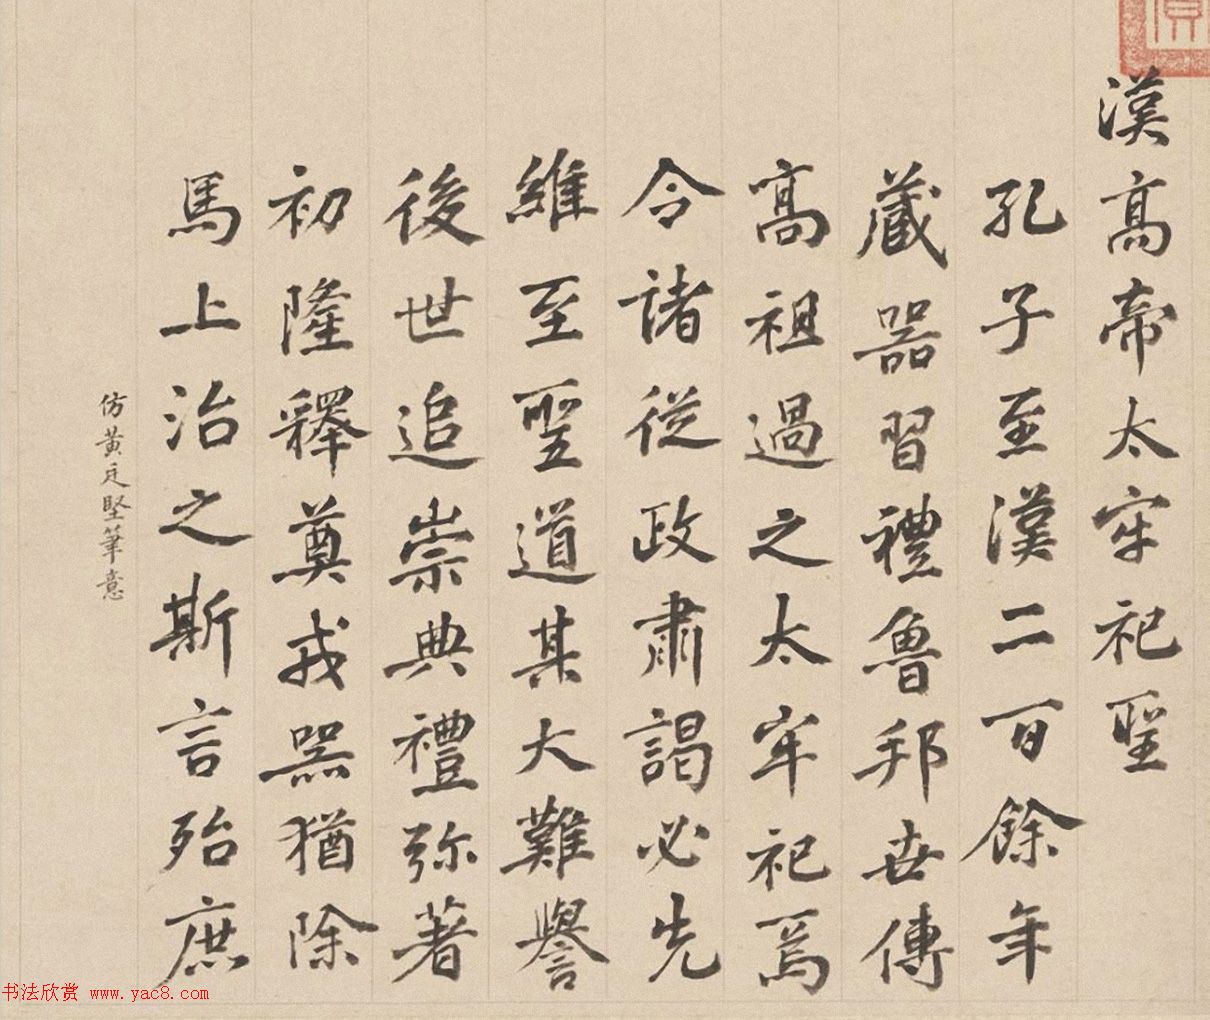 漢高帝太牢祀聖
孔子至漢二百餘年
藏器習禮魯邦世傳
高祖過之太牢祀焉
令諸從政肅謁必先
維至聖道其大難譽
後世追崇典禮弥著
初隆釋奠戎器猶除
馬上治之斯言殆庶
仿黃庭堅筆意
书法欣赏 www.yac8.com